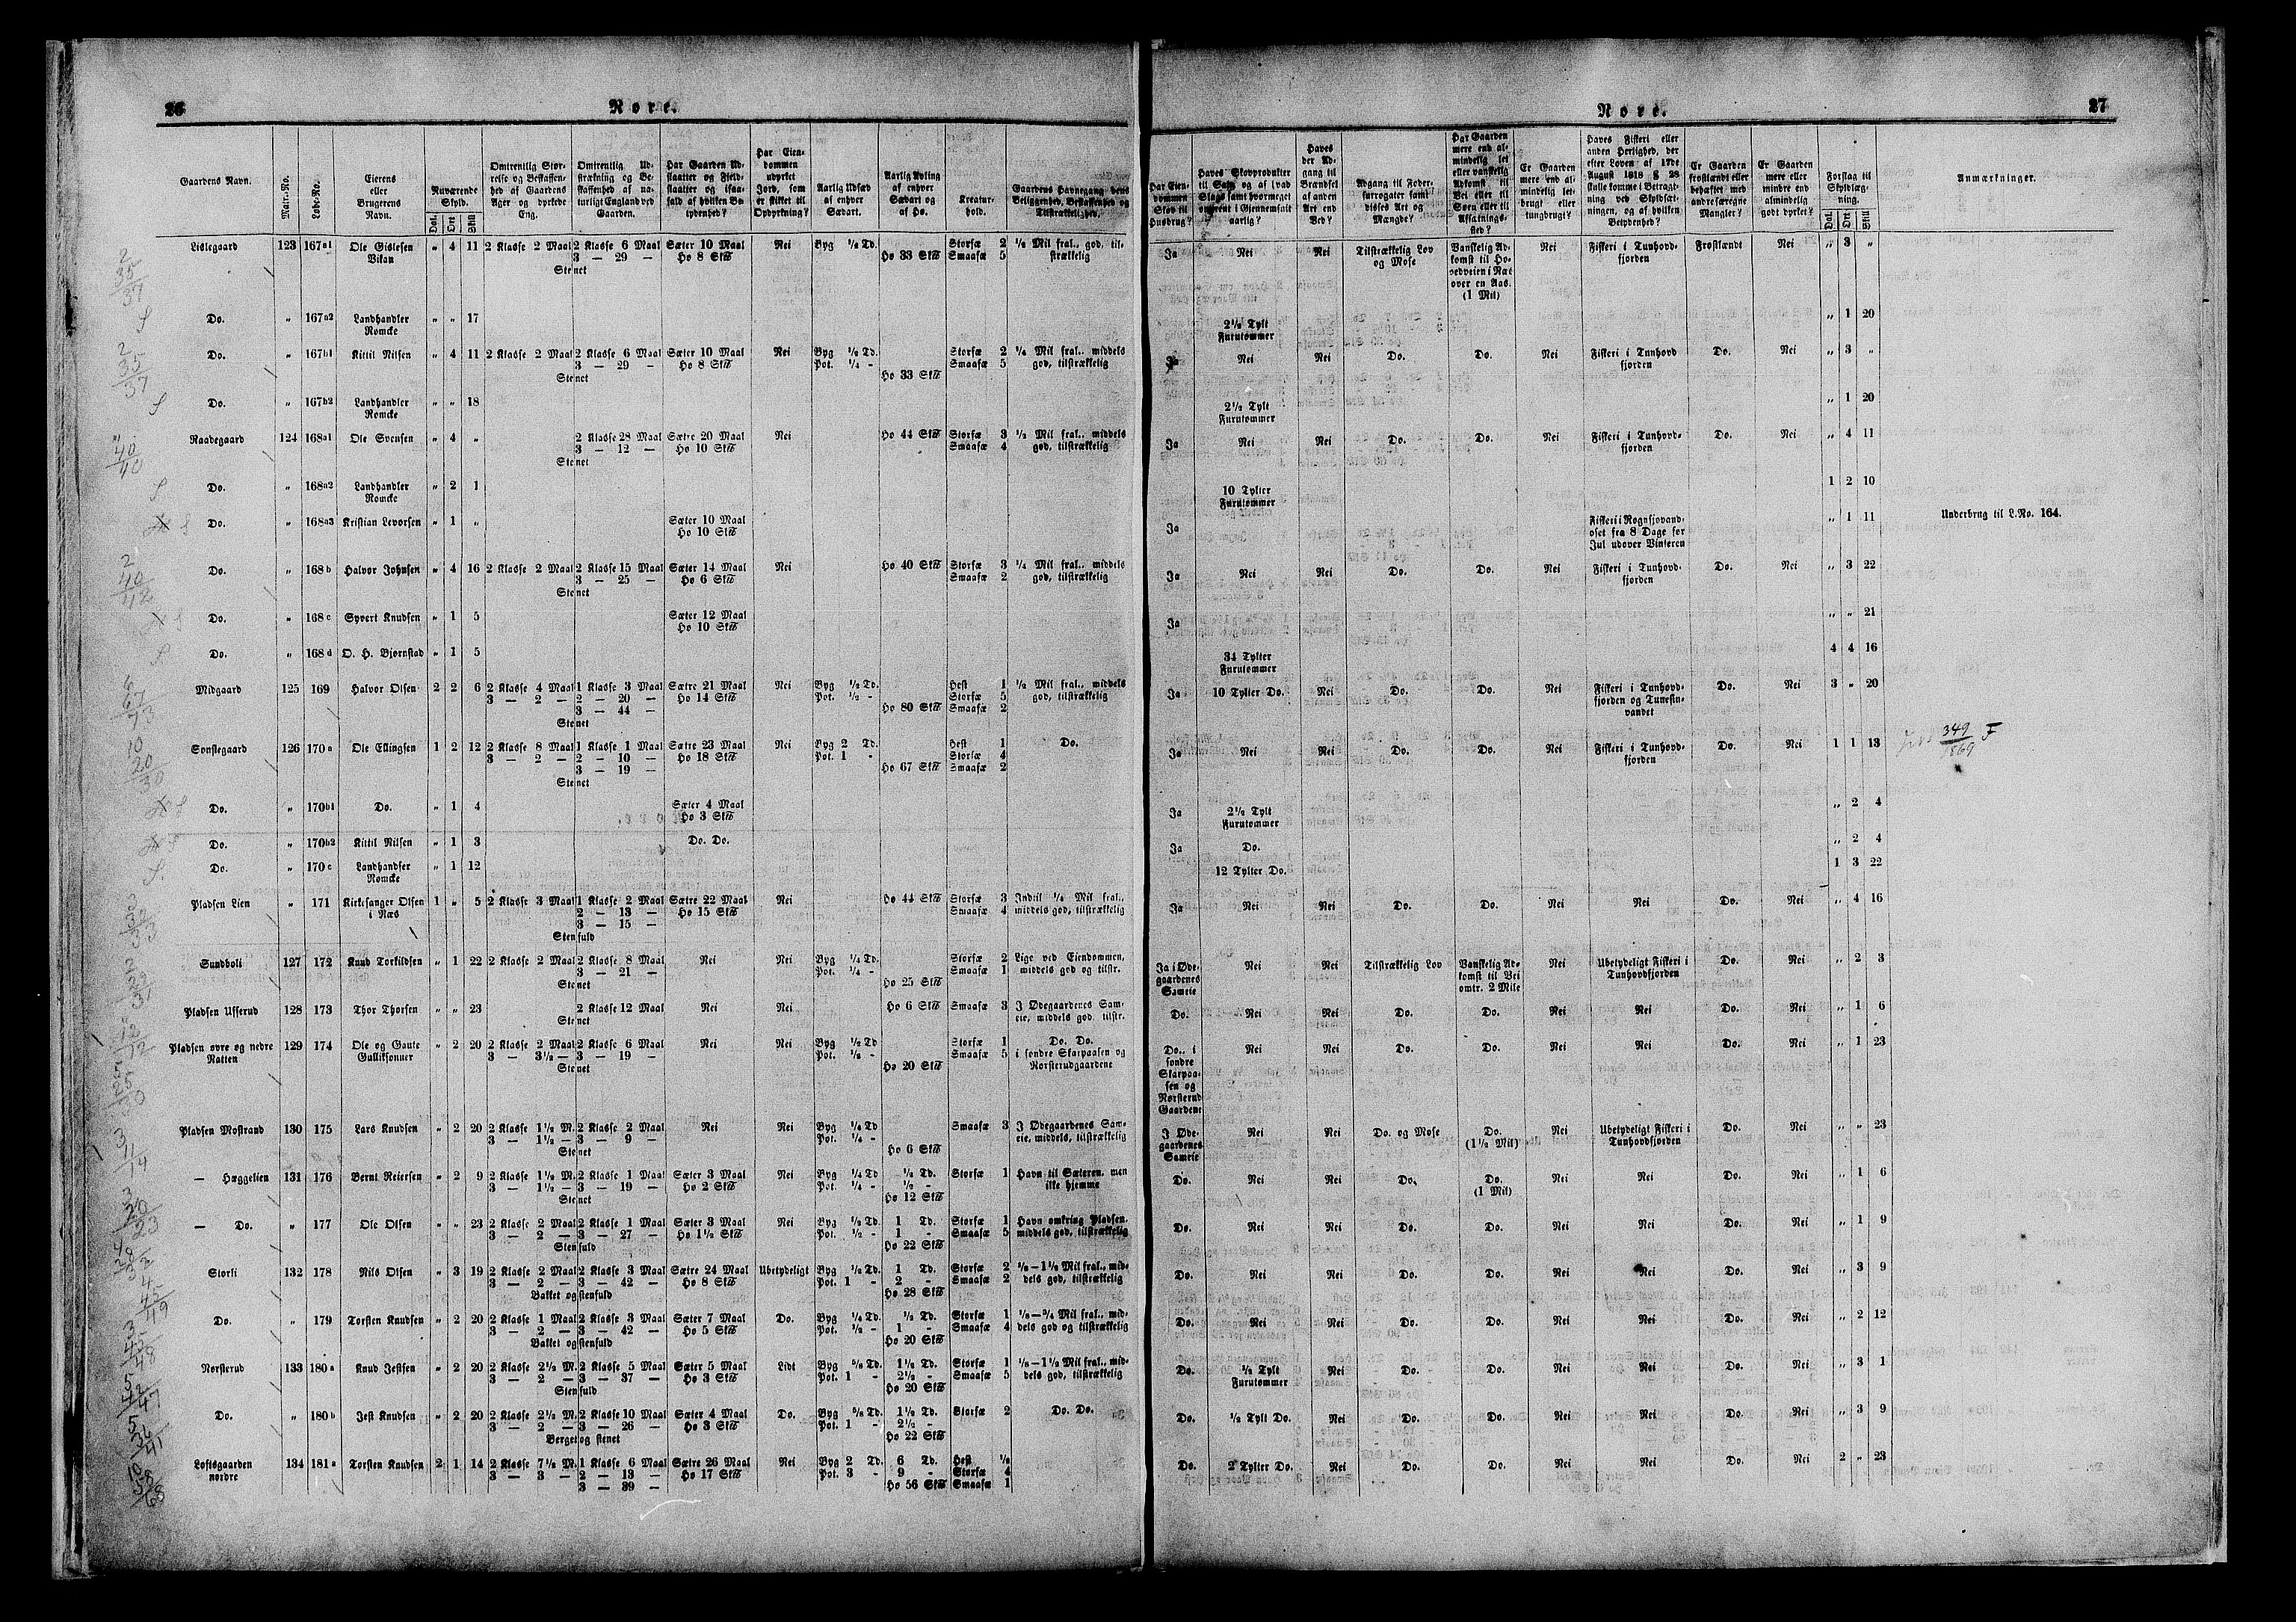 26
Nore.
Gaardens Navn.
Matr.-No.
Løbe-No.
Eierens eller Brugerens Navn.
Nuværende Skyld.
Dal. Ort Skill
Omtrentlig Størrelse og Beskaffenhed af Gaardens Ager og dyrkede Eng.
Omtrentlig Udstrækning og Beskaffenhed af naturligt England ved Gaarden.
Har Gaarden Udslaatter og Fjeldslaatter og isaafald af hvilken Betydenhed?
Har Eiendommen udyrket Jord, som er skikket til Opdyrkning?
Aarlig Udsæd af enhver Sædart.
Aarlig Avling af enhver Sædart og af Hø.
Kreaturhold.
Gaardens Havnegang dens Beliggenhed, Beskaffenhed og Tilstrækkelighed.
Lislegaard 123 167a1 Ole Gislesen „ 4 11 2 Klasse 2 Maal 2 Klasse 6 Maal Sæter 10 Maal Nei Byg ⅛ Td. Storfæ 2 ½ Mil fral., god, til-
Vikan 3 — 29 — Hø 8 Sk℔ Hø 33 Sk℔ Smaafæ 5 strækkelig
Stenet
Do. „ 167a2 Landhandler „ „ 17
Romcke
Do. „ 167b1 Kittil Nilsen „ 4 11 2 Klasse 2 Maal 2 Klasse 6 Maal Sæter 10 Maal Nei Byg ⅛ Td. Storfæ 2 ¼ Mil fral., middels
3 — 29 — Hø 8 Sk℔ Pot. ¼ - Smaafæ 5 god, tilstrækkelig
Stenet Hø 33 Sk℔
Do. „ 167b2 Landhandler „ „ 18
Romcke
Raadegaard 124 168a1 Ole Svensen „ 4 „ 2 Klasse 28 Maal Sætre 20 Maal Nei Hø 44 Sk℔ Storfæ 3 ½ Mil fral., middels
3 — 12 — Hø 10 Sk℔ Smaafæ 4 god, tilstrækkelig
Stenet
Do. „ 168a2 Landhandler „ 2 1
Romcke
Do. „ 168a3 Kristian Levorsen „ 1 „ Sæter 10 Maal
Hø 10 Sk℔
Do. „ 168b Halvor Johnsen „ 4 16 2 Klasse 2 Maal 2 Klasse 15 Maal Sæter 14 Maal Nei Hø 40 Sk℔ Storfæ 3 ¼ Mil fral., middels
3 — 25 — Hø 6 Sk℔ Smaafæ 2 god, tilstrækkelig
Stenet
Do. „ 168c Syvert Knudsen „ 1 5 Sæter 12 Maal
Hø 10 Sk℔
Do. „ 168d O. H. Bjørnstad „ 1 5
Midgaard 125 169 Halvor Olsen 2 2 6 2 Klasse 4 Maal 1 Klasse 3 Maal Sætre 21 Maal Nei Byg ½ Td. Hest 1 ½ Mil fral., middels
3 — 2 — 2 — 20 — Hø 14 Sk℔ Pot. ½ - Storfæ 5 god, tilstrækkelig
3 — 44 — Hø 80 Sk℔ Smaafæ 2
Stenet
Svnslegaard 126 170a Ole Ellingsen 1 2 12 2 Klasse 8 Maal 1 Klasse 1 Maal Sætre 23 Maal Nei Byg 2 Td. Hest 1 Do.
3 — 2 — 2 — 10 — Hø 18 Sk℔ Pot. 1 - Storfæ 4
3 — 19 — Hø 67 Sk℔ Smaafæ 2
Stenet
Do. „ 170b1 Do. „ 1 4 Sæter 4 Maal
Hø 3 Sk℔
Do. „ 170b2 Kittil Nilsen „ 1 3 Do. Do.
Do. „ 170c Landhandler „ 1 12
Romcke
Pladsen Lien „ 171 Kirkesanger Olsen 1 „ 5 2 Klasse 3 Maal 1 Klasse 2 Maal Sætre 22 Maal Nei Hø 44 Sk℔ Storfæ 3 Indtil ¼ Mil fral.,
i Næs 2 — 13 — Hø 15 Sk℔ Smaafæ 4 middels god, tilstrækkelig
3 — 15 —
Stenfuld
Sundboli 127 172 Knud Torkildsen „ 1 22 2 Klasse 2 Maal 2 Klasse 8 Maal Nei Nei Byg ¼ Td. Storfæ 2 Lige ved Eiendommen,
3 — 21 — Pot. ¼ - Smaafæ 1 middels god og tilstr.
Stenet Hø 25 Sk℔
Pladsen Ufserud 128 173 Thor Thorsen „ „ 23 2 Klasse 12 Maal Nei Nei Hø 6 Sk℔ Smaafæ 3 I Ødegaardenes Sam-
Stenet eie, middels god, tilstr.
Pladsen øvre og nedre 129 174 Ole og Gaute „ 2 20 2 Klasse 2 Maal 2 Klasse 6 Maal Nei Nei Byg ⅛ Td Storfæ 1 Do. Do.
Natten Gulliksønner 3 — 3½ — 3 — 19 — Pot. ⅛ - Smaafæ 5 i søndre Skarpaasen og
Stenet Hø 20 Sk℔ Norsterudgaardene
Pladsen Mostrand 130 175 Lars Knudsen „ 2 20 2 Klasse 1½ M. 2 Klasse 2 Maal Nei Nei Byg ¼ Td Smaafæ 3 I Ødegaardenes Sam-
3 — 1½ — 3 — 9 — Pot. ¼ - eie, middels, tilstrækkelig
Stenet Hø 6 Sk℔
— Hæggelien 131 176 Bernt Reiersen „ 2 9 2 Klasse 1½ M. 2 Klasse 1 Maal Sæter 3 Maal Nei Byg ¼ Td ½ Td. Storfæ 1 Havn til Sæteren, men
3 — 1½ — 3 — 19 — Hø 2 Sk℔ Pot. ¼ - ½ - ikke hjemme
Stenet Hø 12 Sk℔
— Do. „ 177 Ole Olsen „ „ 23 2 Klasse 2 Maal 2 Klasse 1 Maal Sæter 3 Maal Nei Byg ⅛ Td. 1 Td. Storfæ 1 Havn omkring Pladsen,
3 — 2 — 3 — 27 — Hø 1½ Sk℔ Pot. ½ - 1 - Smaafæ 5 middels god, tilstrækkelig
Stenfuld Hø 22 Sk℔
Storli 132 178 Nils Olsen „ 3 19 2 Klasse 2 Maal 2 Klasse 3 Maal Sætre 24 Maal Ubetydeligt Byg ⅛ Td. 1 Td. Storfæ 2 ⅛—1⅛ Mil fral., mid-
3 — 2 — 3 — 42 — Hø 8 Sk℔ Pot. 1 - 2 - Smaafæ 2 dels god, tilstrækkelig
Bakket og stenfuld Hø 28 Sk℔
Do. „ 179 Torsten Knudsen „ 2 20 2 Klasse 1 Maal 2 Klasse 3 Maal Sæter 7 Maal Do. Byg ¼ Td. ½ Td. Storfæ 1 ⅛—¾ Mil fral., mid-
3 — 2 — 3 — 42 — Hø 5 Sk℔ Pot. ½ - 1 - Smaafæ 4 dels god og tilstrækkelig
Bakket og stenfuld Hø 20 Sk℔
Norsterud 133 180a Knud Jestsen „ 2 20 2 Klasse 2½ M. 2 Klasse 5 Maal Sæter 5 Maal Lidt Byg ⅝ Td. 1½ Td. Storfæ 1 ⅛—1½ Mil fral., mid-
3 — 2 — 3 — 37 — Hø 3 Sk℔ Pot. 1 - 2½ - Smaafæ 5 dels god, tilstrækkelig
Stenfuld Hø 20 Sk℔
Do. „ 180b Jest Knudsen „ 2 20 2 Klasse 2½ M. 2 Klasse 10 Maal Sæter 4 Maal Do. Byg ⅝ Td. 1½ Td. Storfæ 2 Do. Do.
3 — 2 — 3 — 26 — Hø 3 Sk℔ Pot. 1 - 2½ -
Berget og stenet Hø 22 Sk℔
Loftsgaarden 134 181a Torsten Knudsen 2 1 14 2 Klasse 7½ M. 1 Klasse 6 Maal Sætre 26 Maal Nei Byg 2 Td. 6 Td. Hest ½
nordre 3 — 3 — 2 — 13 — Hø 17 Sk℔ Pot. 3 - 9 - Storfæ 4
3 — 39 — Hø 56 Sk℔ Smaafæ 1
Nore.
27
Har Eiendommen Skov til Husbrug?
Haves Skovprodukter til Salg og af hvad Slags samt hvormeget omtrent i Gjennemsnit aarlig?
Haves der Adgang til Brændsel af anden Art end Ved?
Adgang til Fodersurrogater samt disses Art og Mængde?
Har Gaarden mere end almindelig let eller vanskelig Adkomst til Vei eller til Søen eller til Afsætningssted?
Er Gaarden mere end almindelig letbrugt eller tungbrugt?
Haves Fiskeri eller anden Herlighed, der efter Loven af 17de August 1818 § 28 skulle komme i Betragtning ved Skyldsætningen, og af hvilken Betydenhed?
Er Gaarden frostlændt eller behæftet med andre særegne Mangler?
Er Gaarden mere eller mindre end almindelig godt dyrket?
Forslag til Skyldlægning.
Dal. Ort Skill
Anmærkninger.
Ja Nei Nei Tilstrækkelig Lov Vanskelig Ad- Nei Fiskeri i Tunhovd- Frostlændt Nei „ 3 „
og Mose komst til Ho- fjorden
vedveien i Næs
over en Aas.
(1 Mil)
2½ Tylt „ 1 20
Furutømmer
Ja Nei Nei Do. Do. Nei Fiskeri i Tunhovd Do. Nei „ 3 „
fjorden
2½ Tylt „ 1 20
Furutømmer
Ja Nei Nei Do. Do. Nei Fiskeri i Tunhovd- Do. Nei „ 4 11
fjorden
10 Tylter 1 2 10
Furutømmer
Ja Fiskeri i Rognsjovand- „ 1 11 Underbrug til L.No. 164.
oset fra 8 Dage før
Jul udover Vinteren
Ja Nei Nei Do. Do. Nei Fiskeri i Tunhovd- Do. Nei „ 3 22
fjorden
Ja „ „ 21
34 Tylter 4 4 16
Furutømmer
Ja 10 Tylter Do. Nei Do. Do. Nei Fiskeri i Tunhovd- Do. Nei 3 „ 20
fjorden og Tunestin-
vandet
Ja Nei Nei Do. Do. Nei Fiskeri i Tunhovd- Do. Nei 1 1 13 349/1869 F
fjorden
Ja 2½ Tylt „ 2 4
Furutømmer
Ja Do. „ 2 4
12 Tylter Do. 1 3 22
Ja Nei Nei Do. Do. Nei Nei Do. Nei „ 4 16
Ja i Øde- Nei Nei Tilstrækkelig Lov Vanskelig Ad- Nei Ubetydeligt Fiskeri i Do. Nei „ 2 3
gaardenes komst til Vei Tunhovdfjorden
Sameie omtr. 2 Mile
Do. Nei Nei Do. Do. Nei Nei Do. Nei „ 1 6
Do., i Nei Nei Do. Do. Nei Nei Do. Nei „ 1 23
søndre
Skarpaa-
sen og
Norsterud
Gaardene
I Øde- Nei Nei Do. og Mose Do. Nei Ubetydeligt Fiskeri i Do. Nei „ „ 23
gaardenes (1½ Mil) Tunhovdfjorden
Sameie
Do. Nei Nei Do. Do. Nei Nei Do. Nei „ 1 6
(1 Mil)
Do. Nei Nei Do. Do. Nei Nei Do. Nei „ 1 9
Do. Nei Nei Do. Do. Nei Nei Do. Nei „ 3 9
Do. Nei Nei Do. Do. Nei Nei Do. Nei „ 2 12
Do. ½ Tylt Nei Do. Do. Nei Nei Do. Nei „ 3 1
Furutømmer
Do. ½ Tylt Do. Nei Do. Do. Nei Nei Do. Nei „ 3 9
Do. 2 Tylter Do. Nei Do. Do. Nei Nei Do. Nei 2 „ 23